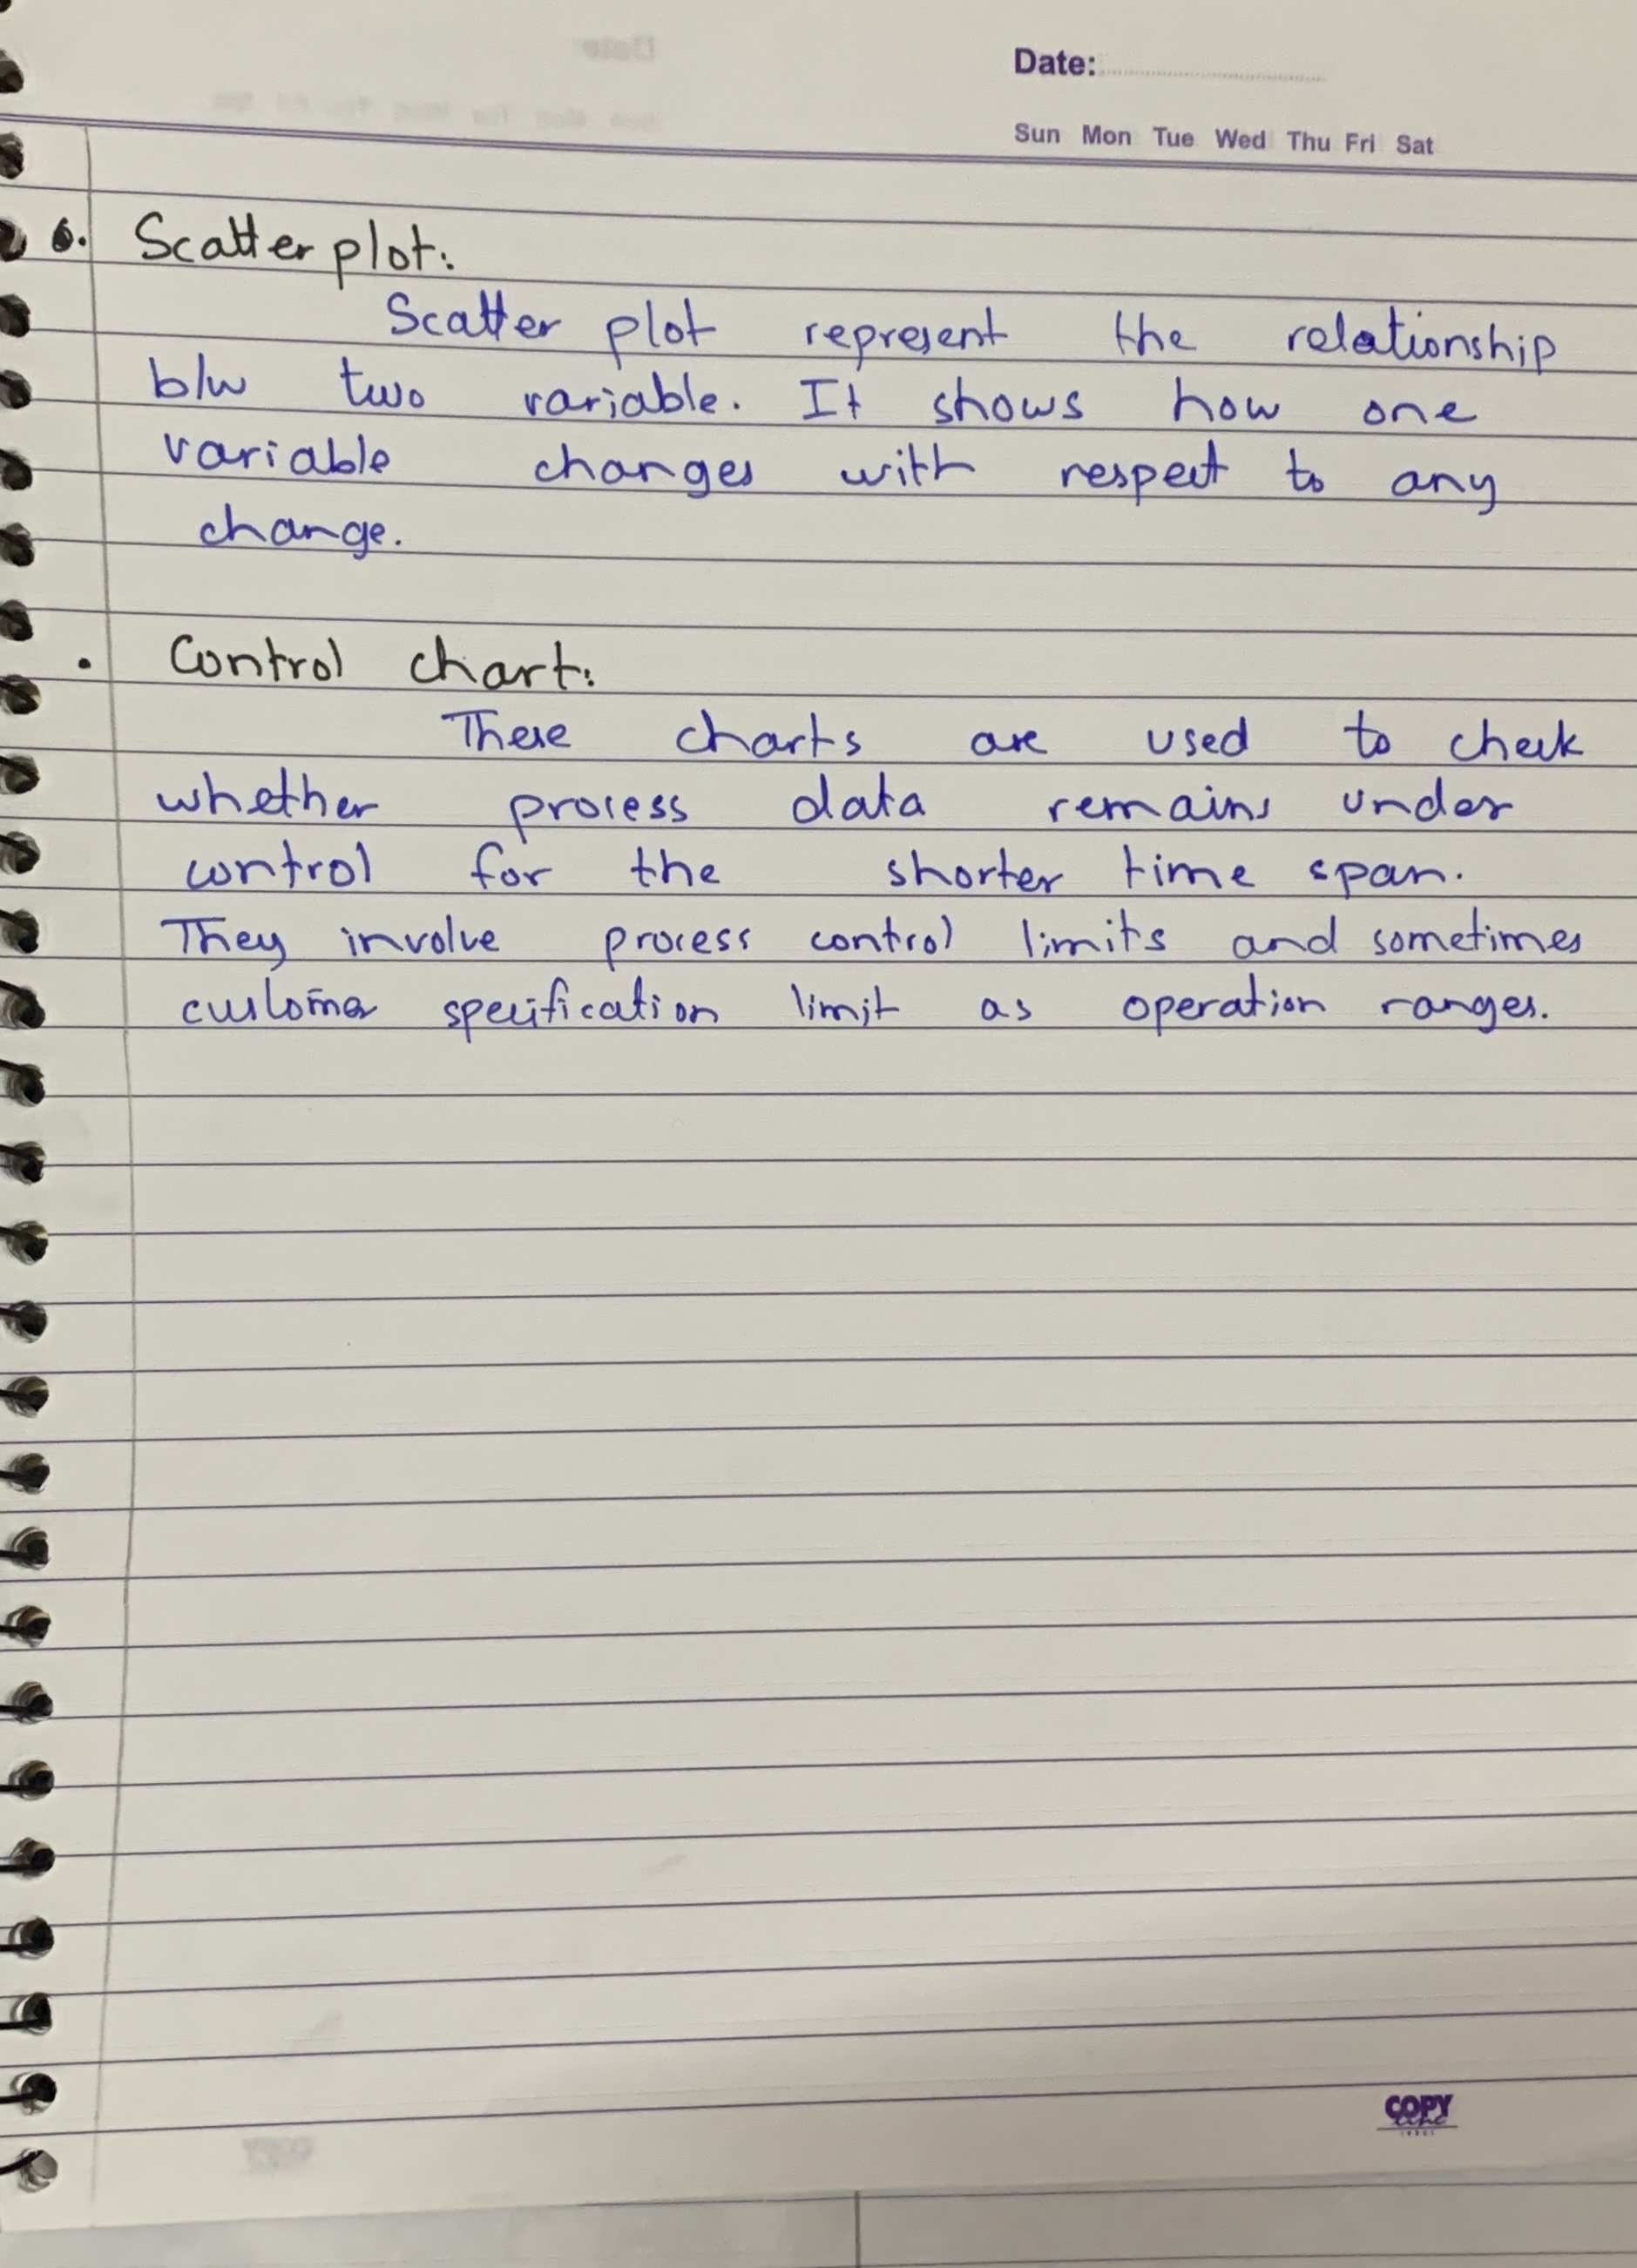 Date:
Sun Mon Tue Wed Thu Fri Sat
• Scatter plot:
Scatter plot represent the relationship
b/w two variable. It shows how one
variable changes with respect to any
change.
• Control chart:
These charts are used to check
whether process data remains under
control for the shorter time span.
They involve process control limits and sometimes
customer specification limit as operation ranges.
COPY